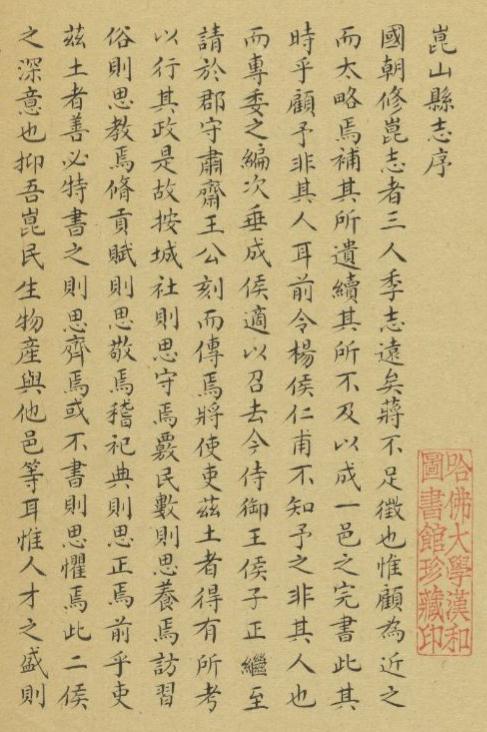 崑山縣志序
國朝修崑志者三人季志遠矣蔣不足徵也惟顧為近之
而太略焉補其所遺續其所不及以成一邑之完書此其
時乎顧予非其人耳前令楊侯仁甫不知予之非其人也
而專委之編次垂成侯適以召去今侍御王侯子正繼至
請於郡守肅齋王公刻而傳焉將使吏茲土者得有所考
以行其政是故按城社則思守焉覈民數則思養焉訪習
俗則思教焉脩貢賦則思敬焉稽祀典則思正焉前乎吏
茲土者善必特書之則思齊焉或不書則思懼焉此二侯
之深意也抑吾崑民生物產與他邑等耳惟人才之盛則
哈佛大學漢和
圖書館珍藏印